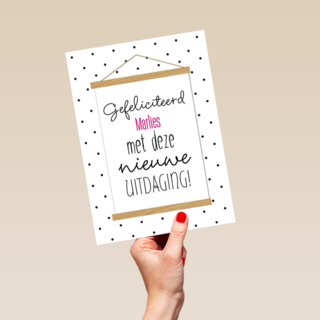 Gefeliciteerd
Marlies
met deze
nieuwe
UITDAGING!